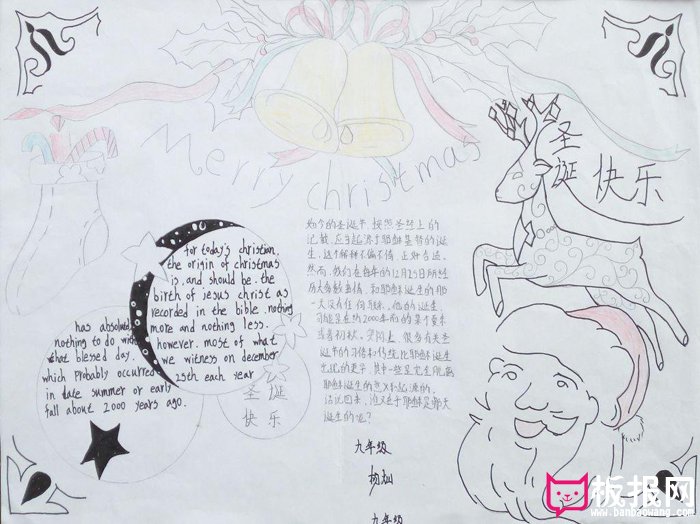 Merry christmas
圣诞 快乐
for today's christian,
the origin of christmas
is, and should be. the
birth of jesus christ as
recorded in the bible. nothing
more and nothing less.
however. most of what
we witness on december
25th each year
has absolutely
nothing to do with
that blessed day.
which probably occurred
in date summer or early
fall about 2000 years ago.
圣诞
快乐
如今的圣诞节 按照圣经上的
记载, 应当起源于耶稣基督的诞
生, 这个解释不偏不倚 正好合适.
然而, 我们在每年的12月25日所经
历大多数事情, 和耶稣诞生的那
一天没有任何联系, 他的诞生,
可能是在约2000年前的某个夏末
或者初秋, 实际上 很多有关圣
诞节的习俗和传统比耶稣诞生
诞生的呢?
九年级
九年级
板报网
www.banbaowang.com